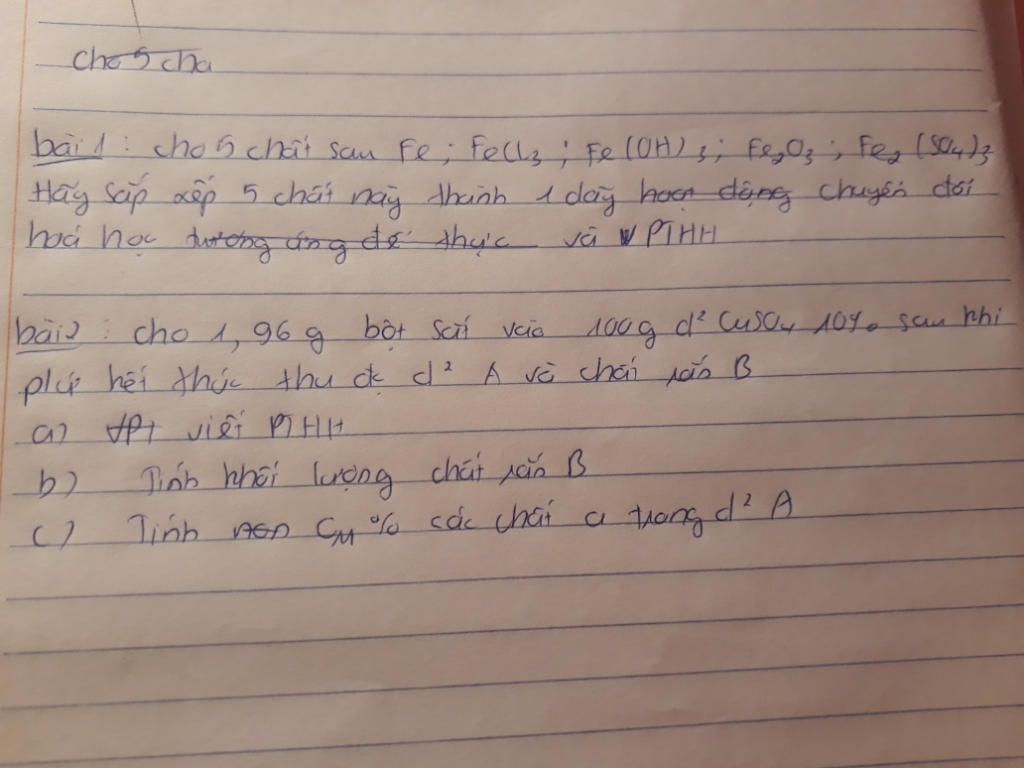 cho 5 cha
bài 1 : cho 5 chất sau Fe ; FeCl3 ; Fe(OH)3 ; Fe2O3 ; Fe2(SO4)3
Hãy sắp xếp 5 chất này thành 1 dãy hoạt động chuyển đổi
hoá học tương ứng để thực và PTHH
bài 2 : cho 1,96 g bột sắt vào 100g d² CuSO4 10% sau khi
pứ hết thúc thu đc d² A và chất rắn B
a) viết PTHH
b) Tính khối lượng chất rắn B
c) Tính CM % các chất a trong d² A